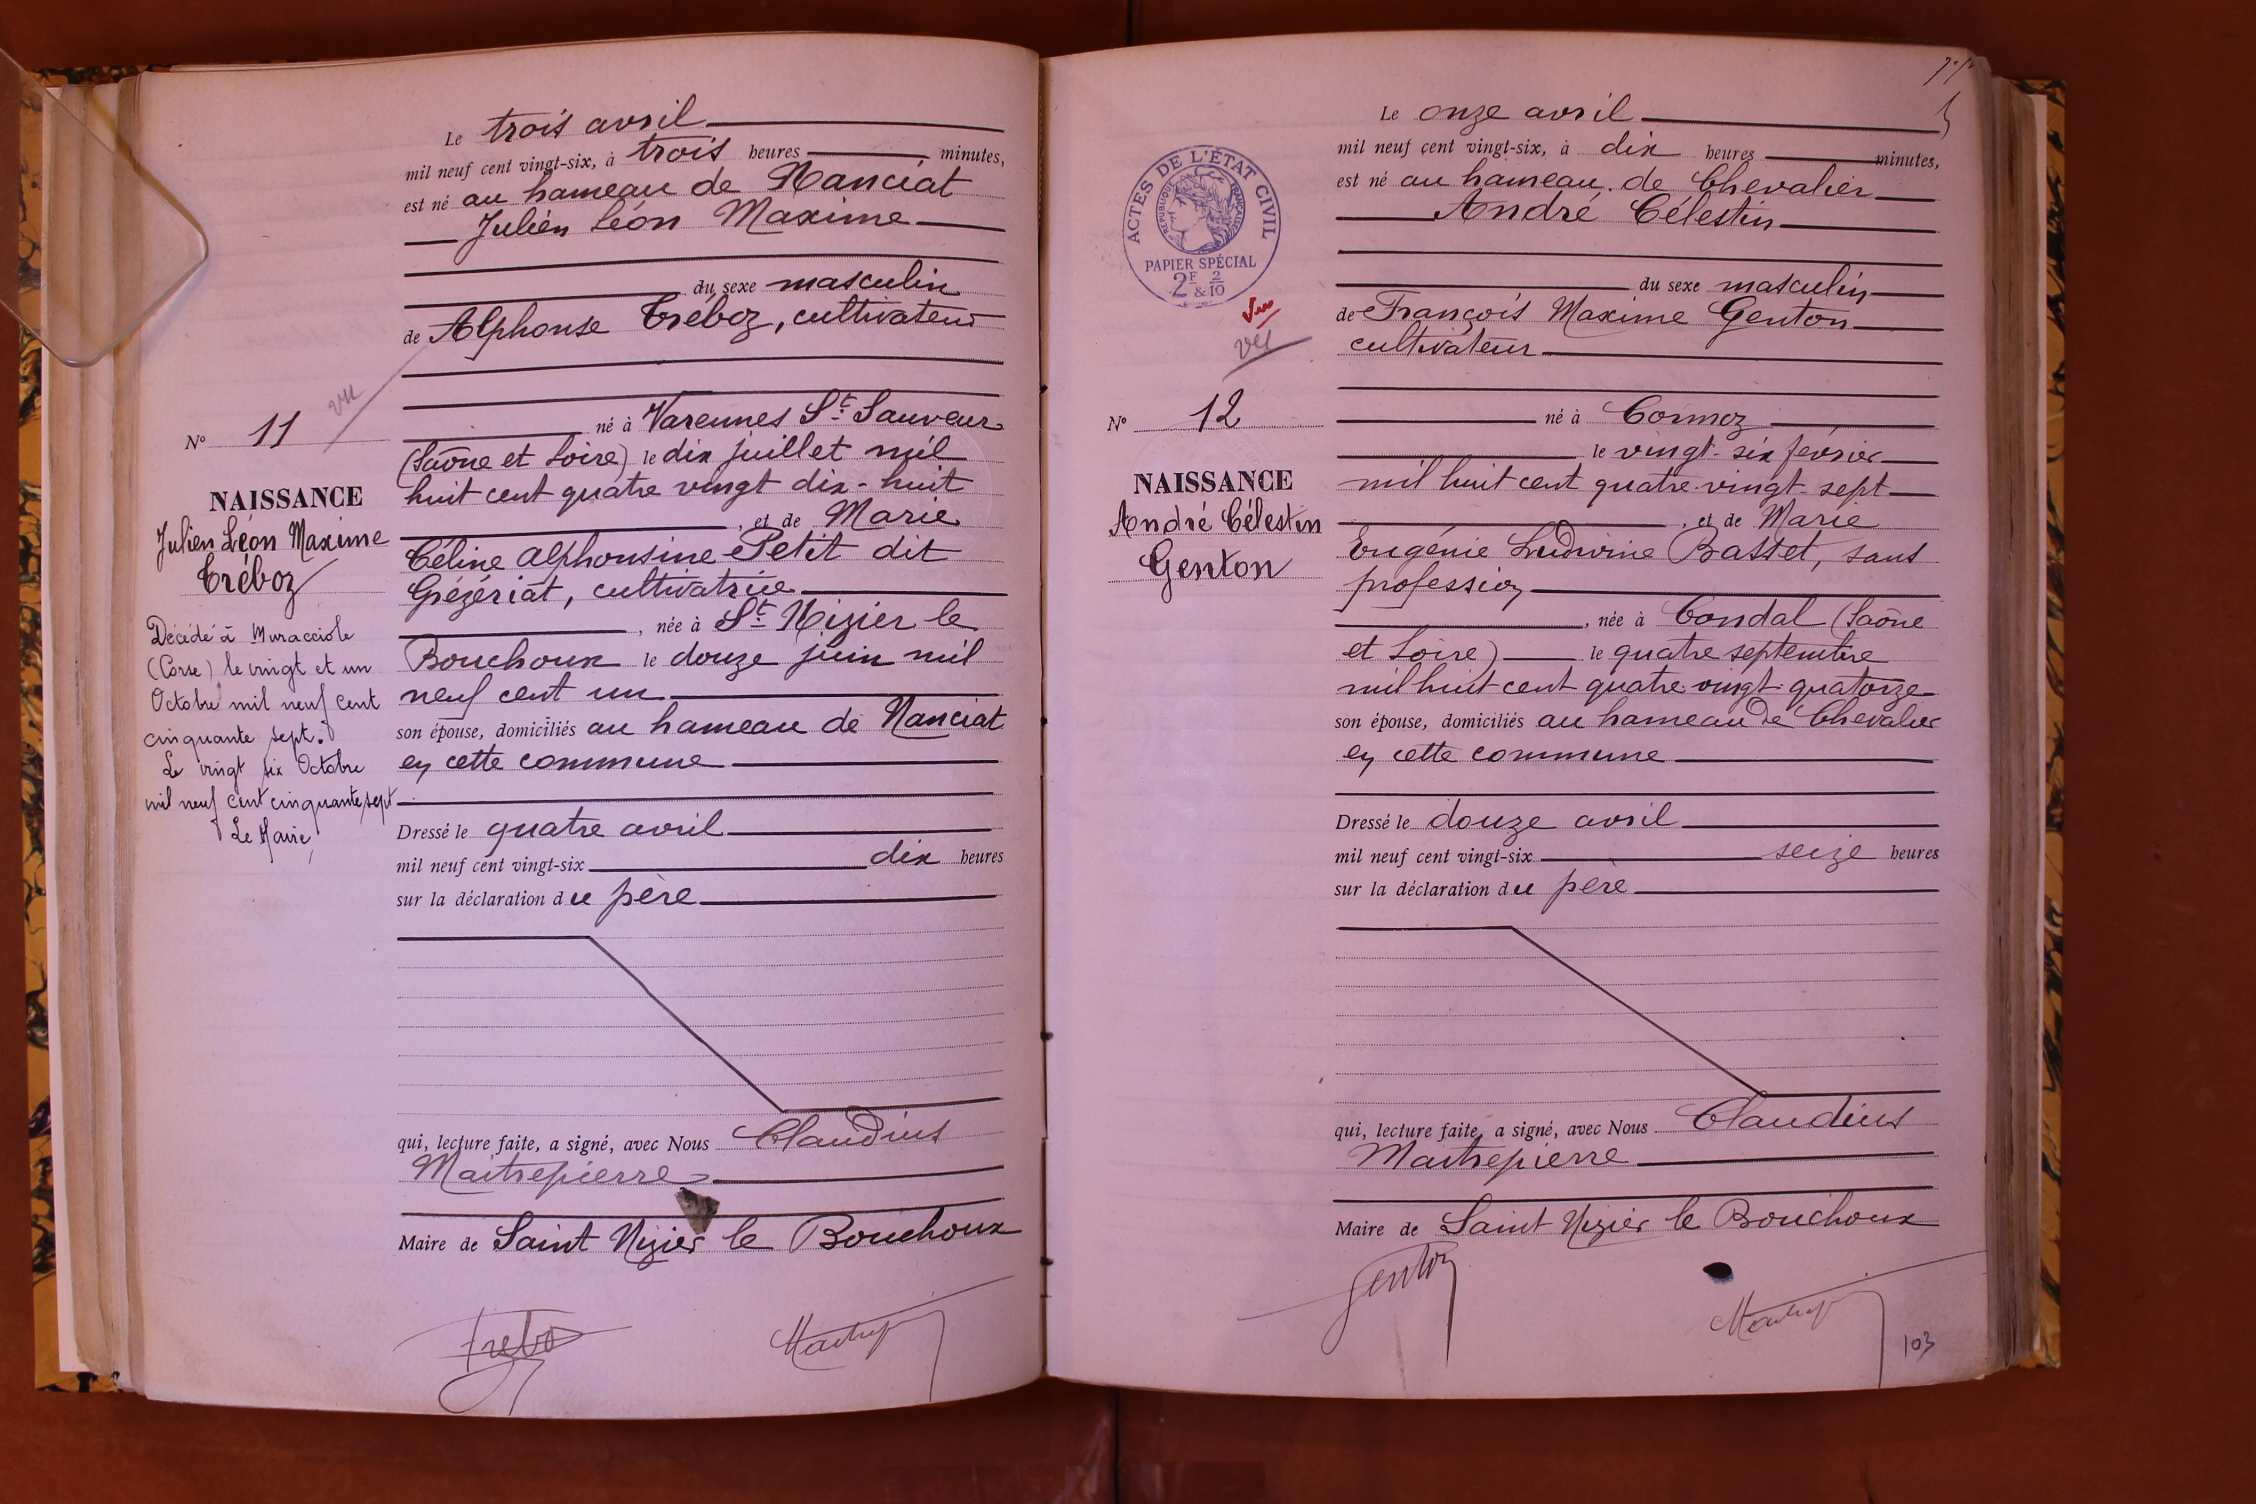 Le trois avril
mil neuf cent vingt-six, à trois heures minutes,
est né au hameau de Nanciat
Julien Léon Maxime
du sexe masculin
de Alphonse Tréboz, cultivateur
vu
né à Varennes St Sauveur
(Saône et Loire) le dix juillet mil
huit cent quatre vingt dix-huit
, et de Marie
Céline Alphonsine Petit dit
Grézériat, cultivatrice
, née à St Nizier le
Bouchoux le douze juin mil
neuf cent un
son épouse, domiciliés au hameau de Nanciat
en cette commune
Dressé le quatre avril
mil neuf cent vingt-six dix heures
sur la déclaration du père
qui, lecture faite, a signé, avec Nous Claudius
Maitrepierre
Maire de Saint Nizier le Bouchoux
N° 11
NAISSANCE
Julien Léon Maxime
Tréboz
Décédé à Muracciole
(Corse) le vingt et un
Octobre mil neuf cent
cinquante sept.
Le vingt six Octobre
mil neuf cent cinquante sept
Le Maire,
Le onze avril
mil neuf cent vingt-six, à dix heures minutes,
est né au hameau de Chevalier
André Célestin
du sexe masculin
de François Maxime Genton
cultivateur
né à Cormoz
le vingt-six février
mil huit cent quatre-vingt-sept
, et de Marie
Eugénie Ludivine Basset, sans
profession
, née à Condal (Saône
et Loire) le quatre septembre
mil huit cent quatre-vingt-quatorze
son épouse, domiciliés au hameau de Chevalier
en cette commune
Dressé le douze avril
mil neuf cent vingt-six seize heures
sur la déclaration du père
qui, lecture faite, a signé, avec Nous Claudius
Maitrepierre
Maire de Saint Nizier le Bouchoux
Genton
103
ACTES DE L'ÉTAT CIVIL
RÉPUBLIQUE FRANÇAISE
PAPIER SPÉCIAL
2F & 2/10
Vu
vu
N° 12
NAISSANCE
André Célestin
Genton